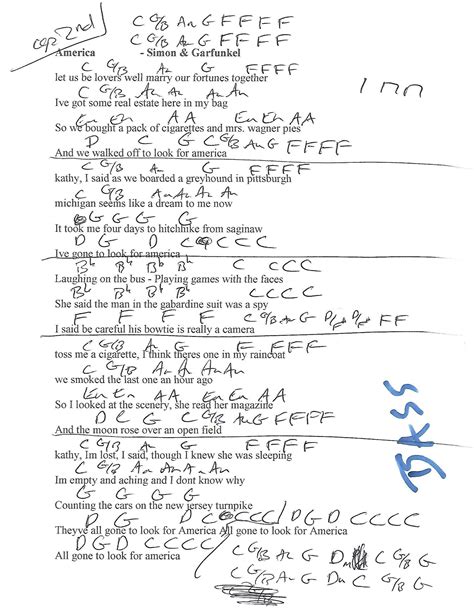 cap 2nd
C G/B Am G F F F F
C G/B Am G F F F F
America - Simon & Garfunkel
C G/B Am G F F F F
let us be lovers well marry our fortunes together
C G/B Am Am Am Am
Ive got some real estate here in my bag
Em Em A A Em Em A A
So we bought a pack of cigarettes and mrs. wagner pies
D C G C G/B Am G F F F F
And we walked off to look for america
C G/B Am G F F F F
kathy, I said as we boarded a greyhound in pittsburgh
C G/B Am Am Am Am
michigan seems like a dream to me now
G G G G
It took me four days to hitchhike from saginaw
D G D C C C C
Ive gone to look for america
Bb Bb Bb Bb C C C C
Laughing on the bus - Playing games with the faces
Bb Bb Bb Bb C C C C
She said the man in the gabardine suit was a spy
F F F F C G/B Am G D/F# D/F# F F
I said be careful his bowtie is really a camera
C G/B Am G F F F F
toss me a cigarette, I think theres one in my raincoat
C G/B Am Am Am Am
we smoked the last one an hour ago
Em Em A A Em Em A A
So I looked at the scenery, she read her magazine
D C G C G/B Am G F F F F
And the moon rose over an open field
C G/B Am G F F F F
kathy, Im lost, I said, though I knew she was sleeping
C G/B Am Am Am Am
Im empty and aching and I dont know why
G G G G
Counting the cars on the new jersey turnpike
D G D C C C C / D G D C C C C
Theyve all gone to look for America All gone to look for America
D G D C C C C
All gone to look for america
C G/B Am G Dm C G/B G
C G/B Am G Dm C G/B G